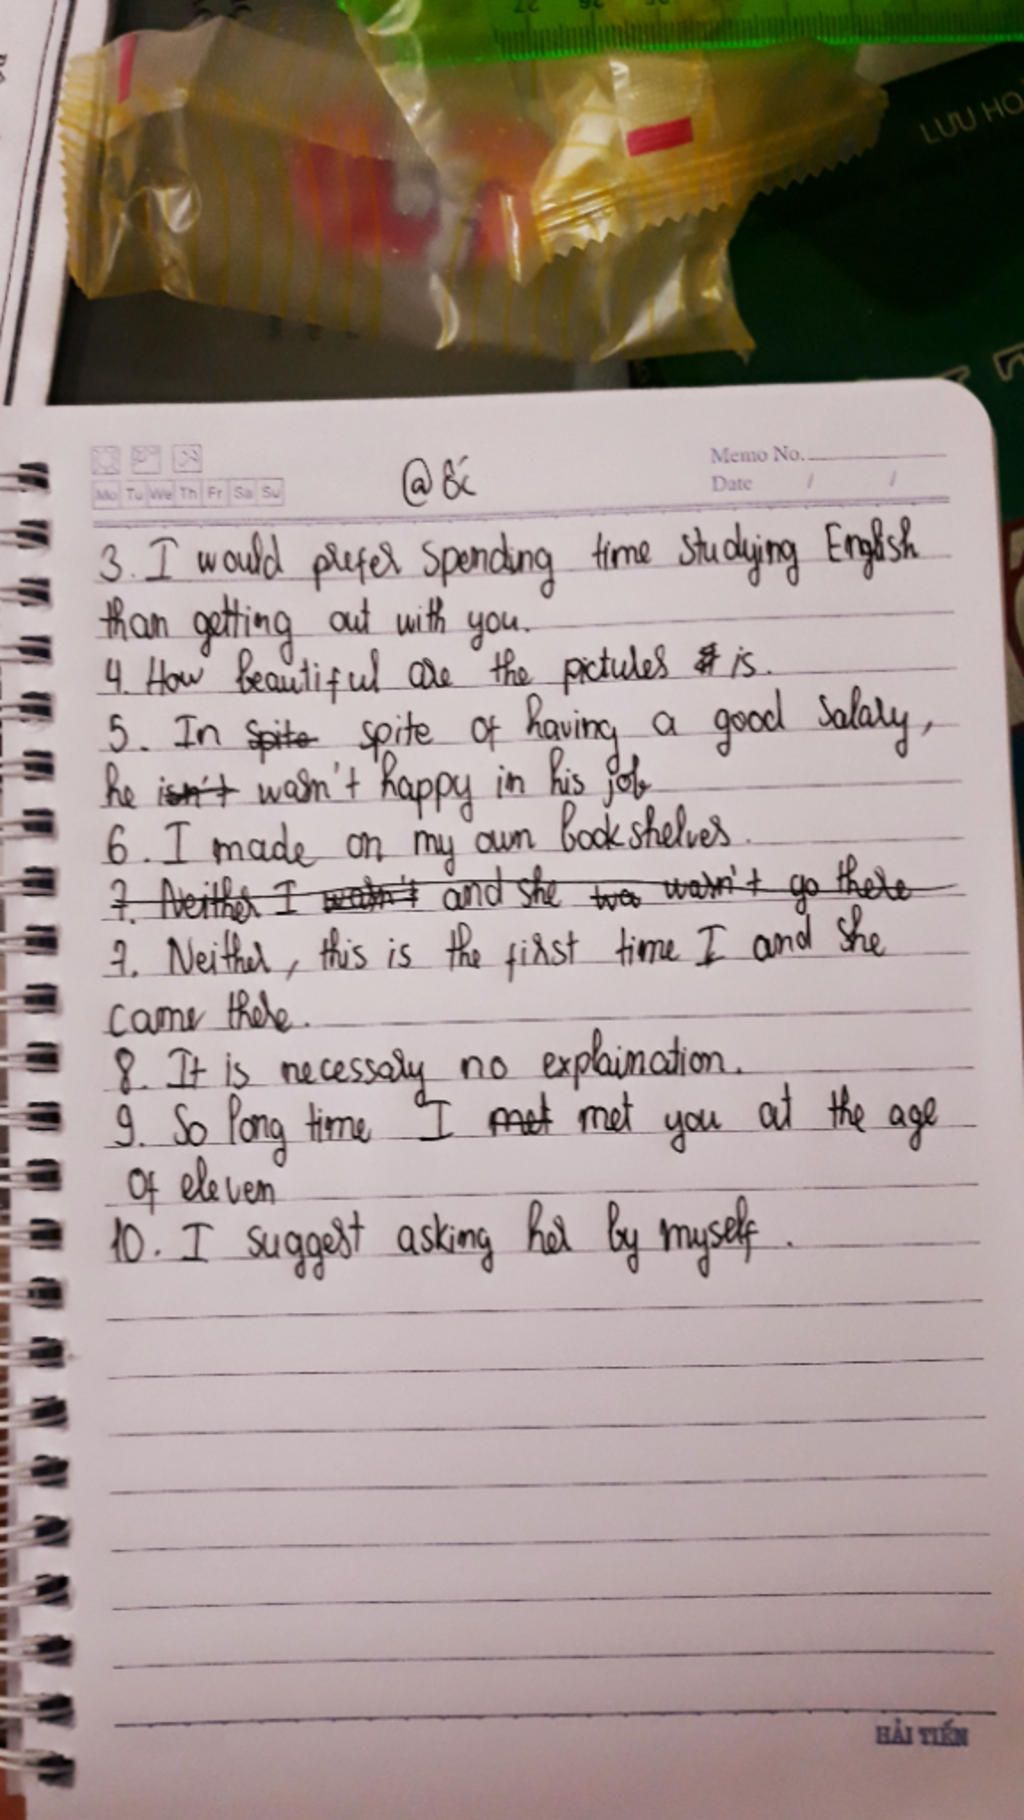 27 26 25
LƯU HO
Memo No.
@ 8c
Mo Tu We Th Fr Sa Su
Date / /
3. I would prefer spending time studying English
than getting out with you.
4. How beautiful are the pictures is.
5. In spite spite of having a good salary,
he isn't wasn't happy in his job
6. I made on my own bookshelves.
7. Neither I wasn't and she wasn't go there
7. Neither, this is the first time I and she
came there.
8. It is necessary no explaination.
9. So long time I met met you at the age
of eleven
10. I suggest asking her by myself.
HẢI TIẾN